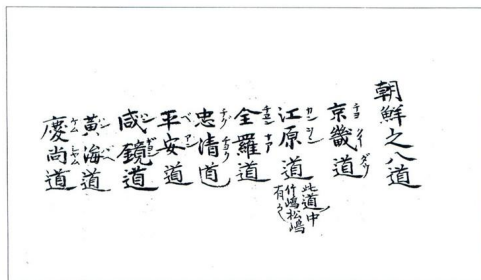 朝鮮之八道
京畿道
江原道 此道中竹嶋松嶋有之
全羅道
忠清道
平安道
咸鏡道
黄海道
慶尚道